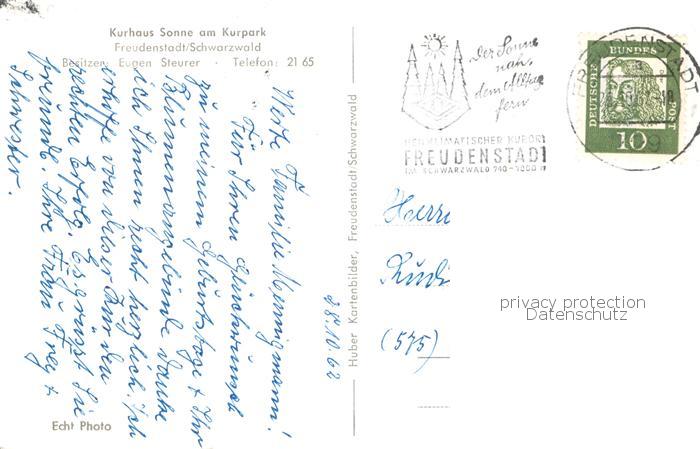 Kurhaus Sonne am Kurpark
Freudenstadt/Schwarzwald
Besitzer: Eugen Steurer · Telefon: 21 65
28.10.62
Werte Familie
Für Ihren Glückwunsch
zu meinem Geburtstage & Ihr
Blumenangebinde danke
ich Ihnen recht herzlich. Ich
erhoffe von dieser Kur den
rechten Erfolg. Es grüsst Sie
freundl. Ihre Frau Frey &
Schwester.
Echt Photo
Huber Kartenbilder, Freudenstadt/Schwarzwald
Der Sonne
nah,
dem Alltag
fern
HEILKLIMATISCHER KURORT
FREUDENSTADT
IM SCHWARZWALD 740-1000 m
FREUDENSTADT
DEUTSCHE BUNDESPOST
10
Herrn
Rudi
(575)
privacy protection
Datenschutz